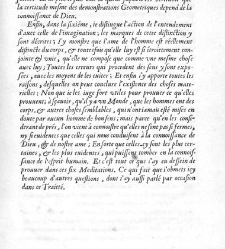 la certitude mesme des demonstrations Geometriques dépend de la
connoissance de Dieu.
Enfin, dans la sixiéme, ie distingue l'action de l'entendement
d'auec celle de l'imagination; les marques de cette distinction y
sont décrites: I'y monstre que l'ame de l'homme est réellement
distincte du corps, & toutesfois qu'elle luy est si étroittement con-
jointe & vnie, qu'elle ne compose que comme vne mesme chose
auec luy: Toutes les erreurs qui procedent des sens y sont expo-
sées, auec les moyens de les euiter: Et enfin i'y apporte toutes les
raisons, desquelles on peut conclure l'existence des choses mate-
rielles: Non que ie les iuge fort vtiles pour prouuer ce qu'elles
prouuent, à sçauoir, qu'il y a vn Monde, que les hommes ont des
corps, & autres choses semblables, qui n'ont iamais esté mises en
doute par aucun homme de bon sens; mais parce qu'en les consi-
derant de prés, l'on vient à connoistre qu'elles ne sont pas si fermes,
ny si éuidentes que celles qui nous conduisent à la connoissance de
Dieu, & de nostre ame; En sorte que celles-cy sont les plus cer-
taines, & les plus éuidentes, qui puissent tomber en la connois-
sance de l'esprit humain. Et c'est tout ce que i'ay eu dessein de
prouuer dans ces six Meditations. Ce qui fait que i'obmets icy
beaucoup d'autres questions, dont i'ay aussi parlé par occasion
dans ce Traité.